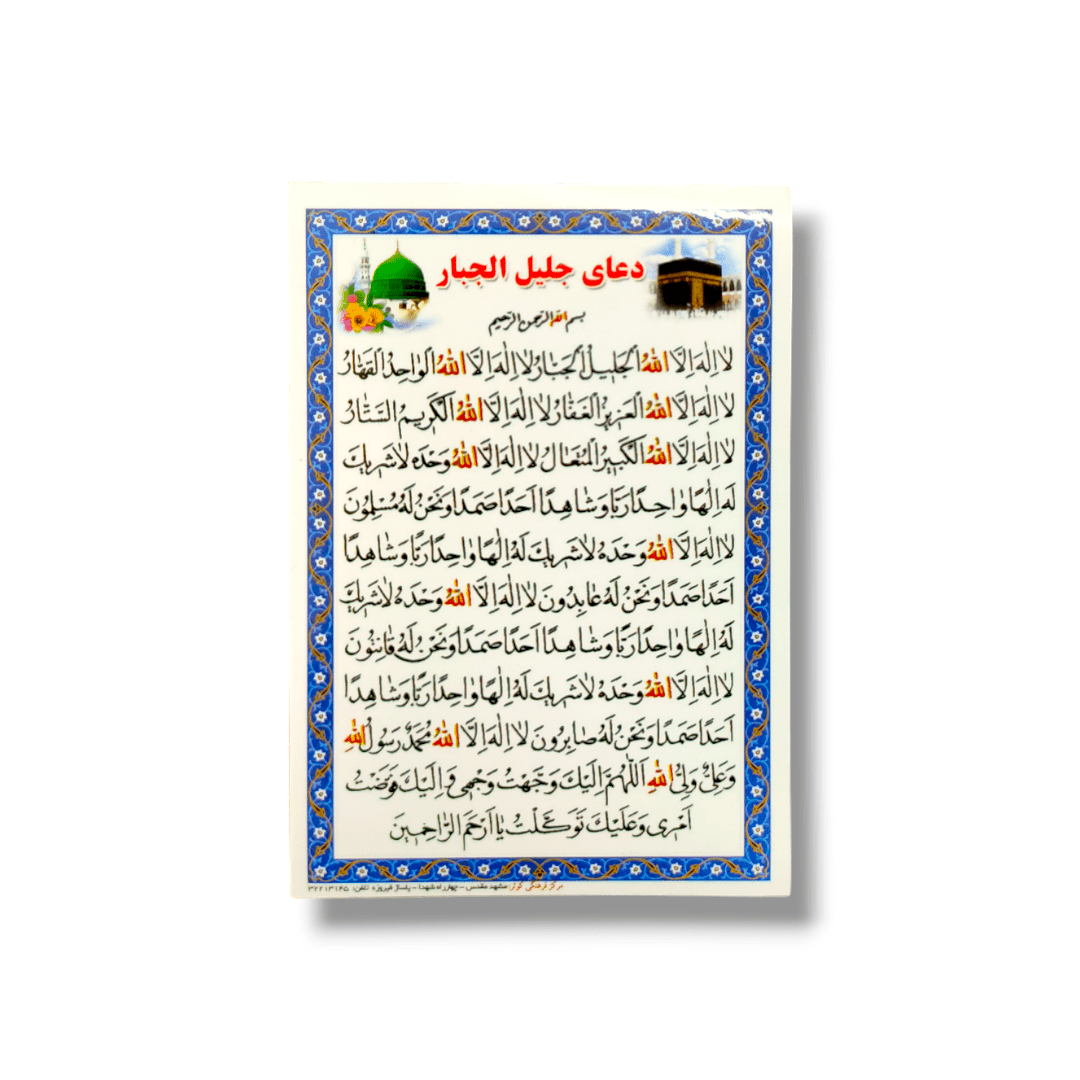 دعای جلیل الجبار
بسم الله الرحمن الرحیم
لا اِلٰهَ اِلَّا اللهُ الْجَلیلُ الْجَبّارُ لا اِلٰهَ اِلَّا اللهُ الْواحِدُ الْقَهّارُ
لا اِلٰهَ اِلَّا اللهُ الْعَزیزُ الْغَفّارُ لا اِلٰهَ اِلَّا اللهُ الْكَریمُ السَّتّارُ
لا اِلٰهَ اِلَّا اللهُ الْكَبیرُ الْمُتَعالُ لا اِلٰهَ اِلَّا اللهُ وَحْدَهُ لا شَریكَ
لَهُ اِلٰهًا واحِدًا رَبًّا وَ شاهِدًا اَحَدًا صَمَدًا وَ نَحْنُ لَهُ مُسْلِمُونَ
لا اِلٰهَ اِلَّا اللهُ وَحْدَهُ لا شَریكَ لَهُ اِلٰهًا واحِدًا رَبًّا وَ شاهِدًا
اَحَدًا صَمَدًا وَ نَحْنُ لَهُ عابِدُونَ لا اِلٰهَ اِلَّا اللهُ وَحْدَهُ لا شَریكَ
لَهُ اِلٰهًا واحِدًا رَبًّا وَ شاهِدًا اَحَدًا صَمَدًا وَ نَحْنُ لَهُ قانِتُونَ
لا اِلٰهَ اِلَّا اللهُ وَحْدَهُ لا شَریكَ لَهُ اِلٰهًا واحِدًا رَبًّا وَ شاهِدًا
اَحَدًا صَمَدًا وَ نَحْنُ لَهُ صابِرُونَ لا اِلٰهَ اِلَّا اللهُ مُحَمَّدٌ رَسُولُ اللهِ
وَ عَلِیٌّ وَلِیُّ اللهِ اَللّٰهُمَّ اِلَیْكَ وَجَّهْتُ وَجْهی وَ اِلَیْكَ فَوَّضْتُ
اَمْری وَ عَلَیْكَ تَوَكَّلْتُ یا اَرْحَمَ الرّاحِمینَ
مرکز فرهنگی کوثر: مشهد مقدس - چهارراه شهدا - پاساژ فیروزه تلفن: ۳۲۲۱۳۱۴۵